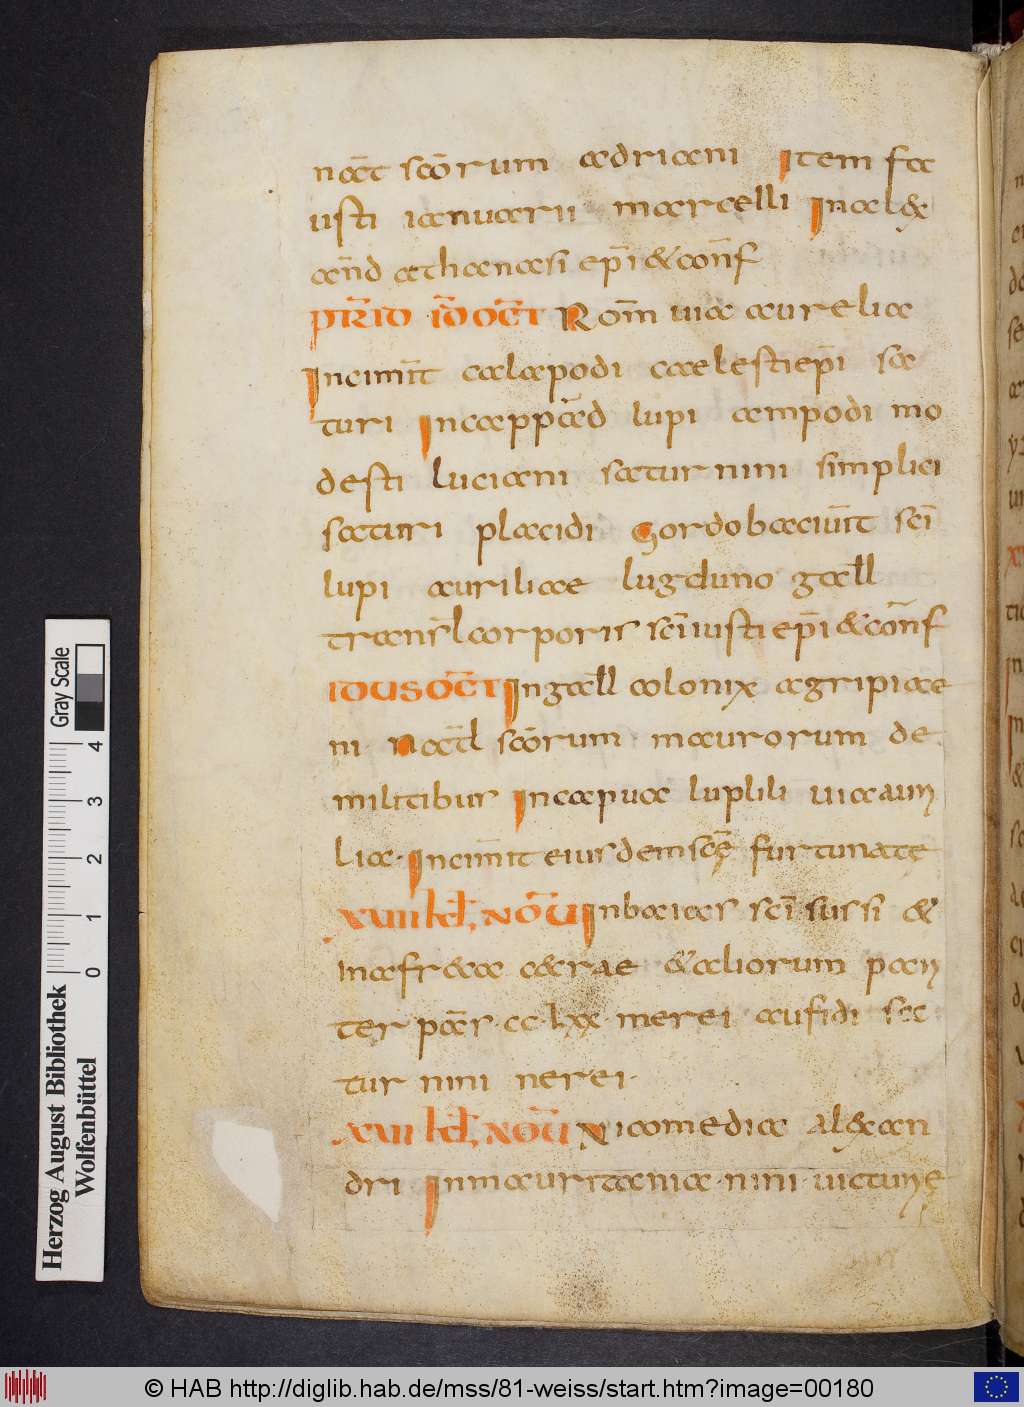 nat̄ scōrum adriani Item fa
usti ianuarii marcelli In al&
and̄ athanasi ep̄i & con̄f
PR̄ID ID̄ OC̄T Rom̄ via aurelia
In cimit̄ calapodi caelesti ep̄i sa
turi In capp̄ad lupi ampodi mo
desti luciani saturnini simplici
saturi placidi Gordoba civit̄ sc̄i
lupi auriliae lugduno gall
transl̄ corporis sc̄i iusti ep̄i & con̄f
IDUS OC̄T In gall colonix agripiae
ni nat̄l scōrum maurorum de
militibus In capua luplili via aur
lia. In cimit̄ eiusdem sc̄ę furtunatę
XVII kl̄, NOV̄ In baias sc̄i sussi &
In afr&ca c&rae & aliorum par
ter par̄ cc lxx merei aufidi sec
tur nini nerei.
XVI kl̄, NOV̄ Nicomedia al&an
dri In mauritania. nini. victurę
Herzog August Bibliothek
Wolfenbüttel
Gray Scale
0 1 2 3 4
© HAB http://diglib.hab.de/mss/81-weiss/start.htm?image=00180